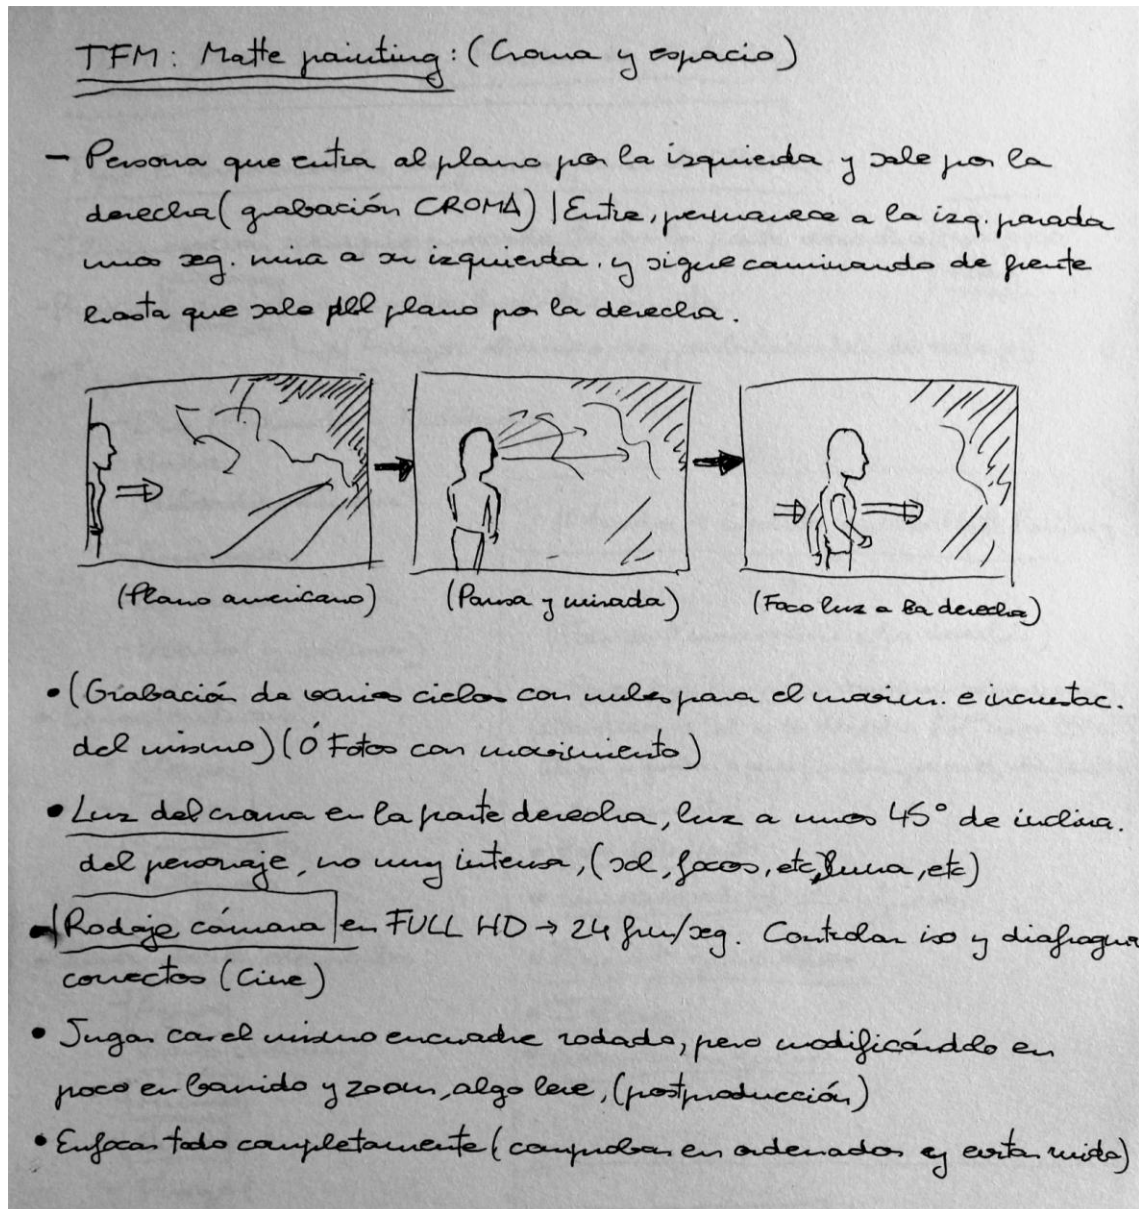 TFM: Matte painting: (Croma y espacio)
- Persona que entra al plano por la izquierda y sale por la
derecha (grabación CROMA) | Entra, permanece a la izq. parada
unos seg. mira a su izquierda. y sigue caminando de frente
hasta que sale del plano por la derecha.
(Plano americano) (Pausa y mirada) (Foco luz a la derecha)
• (Grabación de varios cielos con nubes para el movim. e incrustac.
del mismo) (Ó Fotos con movimiento)
• Luz del croma en la parte derecha, luz a unos 45° de inclina.
del personaje, no muy intensa, (sol, focos, etc, luna, etc)
• Rodaje cámara en FULL HD → 24 fm/seg. Controlar iso y diafragma
correctos (Cine)
• Jugar con el mismo encuadre rodado, pero modificándolo en
poco en barrido y zoom, algo leve, (postproducción)
• Enfocar todo completamente (comprobar en ordenador y evitar ruido)